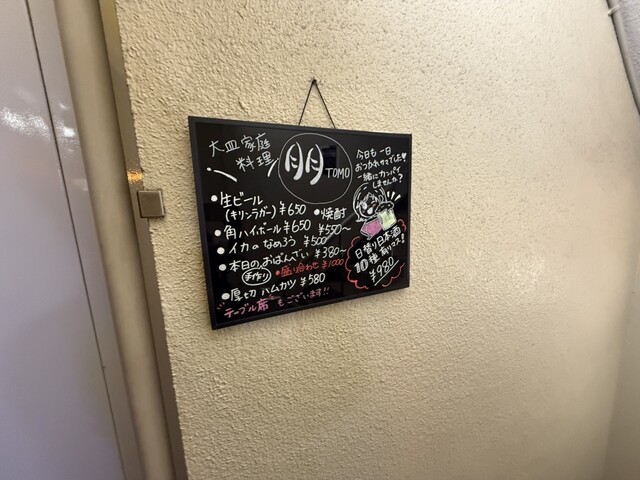 大皿家庭
料理
朋
TOMO
今日も一日
おつかれサマでした♥
一緒にカンパイ
しませんか?
●生ビール
(キリンラガー)¥650
●焼酎
¥550〜
●角ハイボール ¥650
●イカのなめろう ¥500
●本日のおばんざい ¥380〜
手作り
●盛り合わせ ¥1000
●厚切ハムカツ ¥580
テーブル席もございます!!
日替り日本酒
10種
¥980